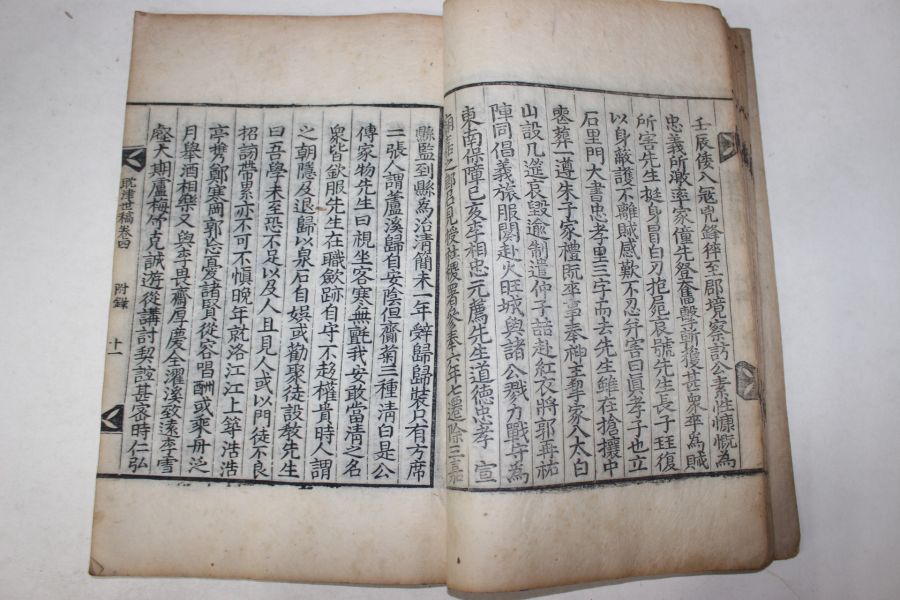 壬辰倭入寇兇鋒猝至郡境察訪公素性慷慨爲
忠義所激率家僮先登奮擊斬獲甚衆卒爲賊
所害先生挺身冒白刃抱屍哀號先生長子珽復
以身敵護不離賊感歎不忍幷害曰眞孝子也立
石里門大書忠孝里三字而去先生雖在搶攘中
喪葬一遵朱子家禮旣卒事奉神主挈家入太白
山設几筵哀毁逾制遣仲子喆赴紅衣將郭再祐
陣同倡義旅服闋赴火旺城與諸公戮力戰守爲
東南保障己亥李相忠元薦先生道德忠孝 宣
六年七遷除三嘉
縣監到縣爲治淸簡未一年辭歸歸裝只有方席
二張人謂蘆溪歸自安陰但齎菊三種淸白是公
傳家物先生曰視坐客寒無氈我安敢當淸之名
衆皆欽服先生在職斂跡自守不趍權貴時人謂
之朝隱及退歸以泉石自娛或勸聚徒設敎先生
曰吾學未至恐不足以及人且見人或以門徒不良
招謗帶累亦不可不愼晩年就洛江江上築浩浩
亭携鄭寒岡郭忘憂諸賢從容唱酬或乘舟泛
月擧酒相樂又與李畏齋厚慶全濯溪致遠李雪
壑大期盧梅竹克誠遊從講討契誼甚密時仁弘
耽津世稿卷四
附錄
十一